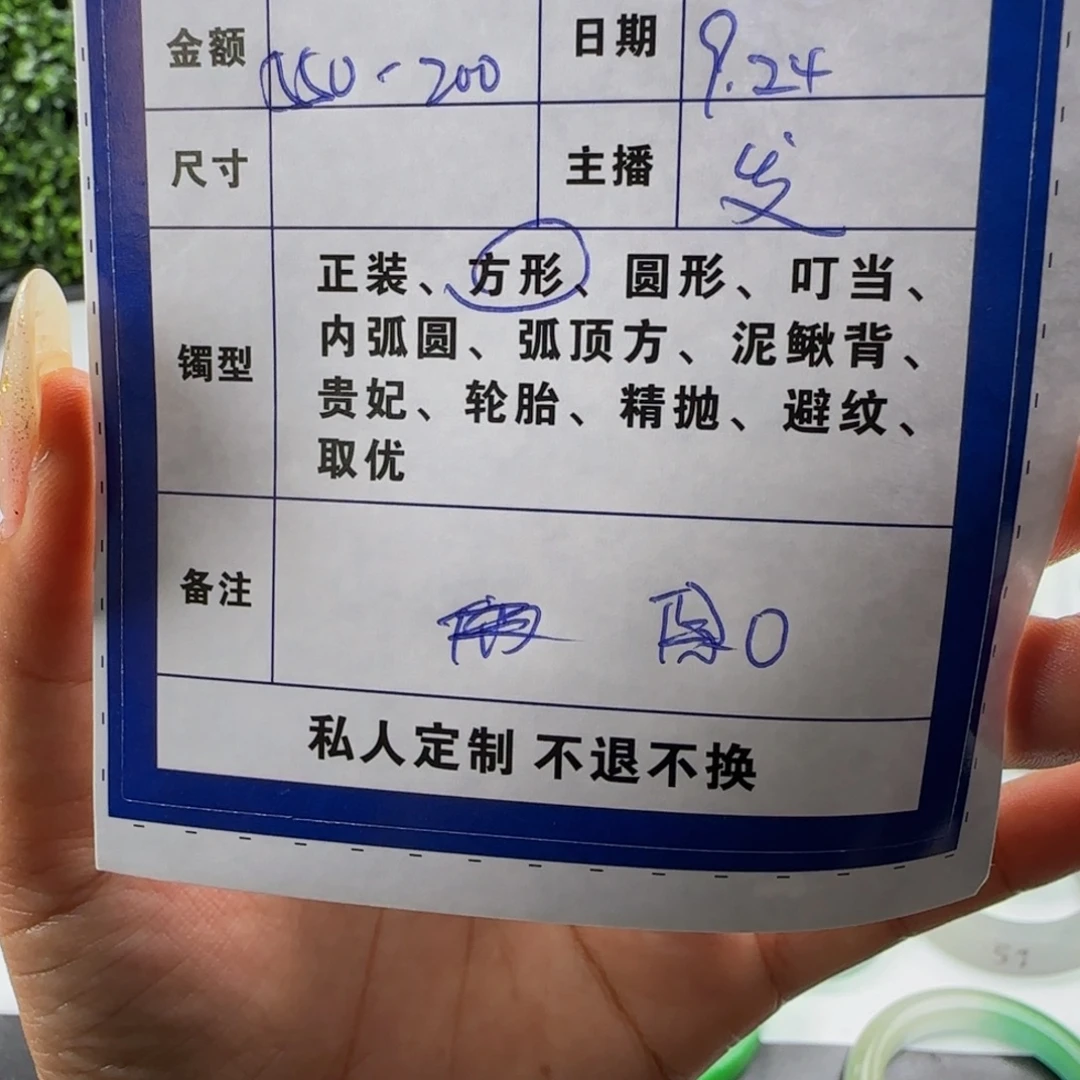 金额 -200 日期 9.24
尺寸 主播
正装、方形、圆形、叮当、
内弧圆、弧顶方、泥鳅背、
镯型
贵妃、轮胎、精抛、避纹、
取优
备注
私人定制 不退不换
57